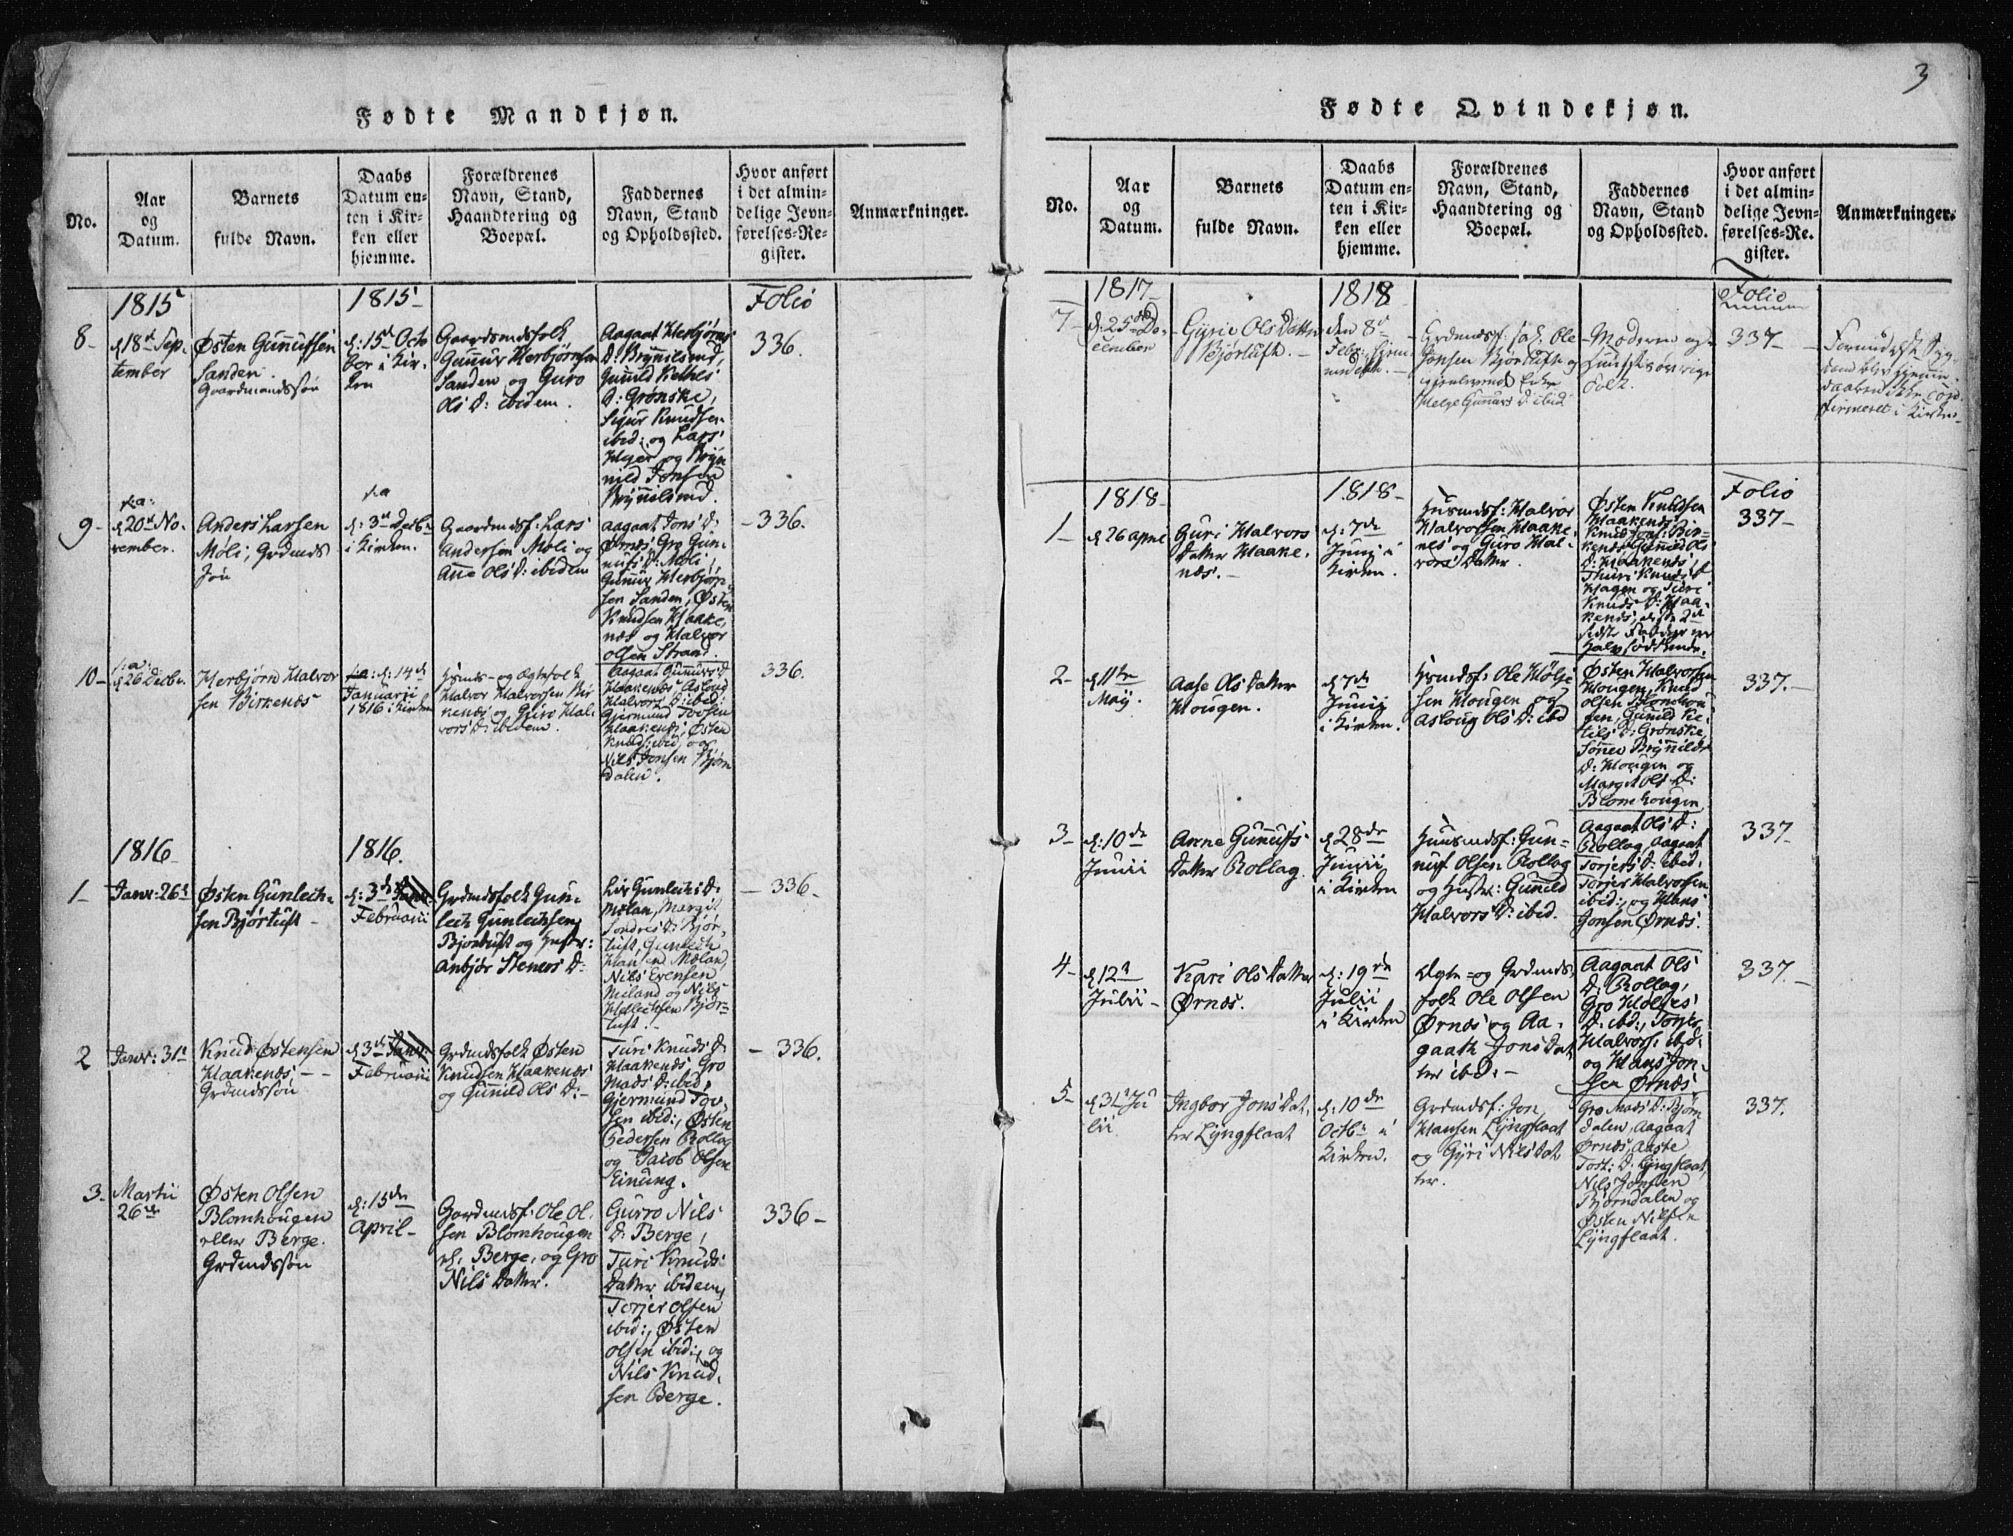 Fødte Mandkjøn.
No.
Aar
og
Datum.
Barnets
fulde Navn.
Daabs
Datum en-
ten i Kir-
ken eller
hjemme.
Forældrenes
Navn, Stand,
Haandtering og
Boepæl.
Faddernes
Navn, Stand
og Opholdssted.
Hvor anført
i det almin-
delige Jevn-
førelses-Re-
gister.
Anmærkninger.
1815
1815
Folio
8-
d 18de Sep-
tember
Østen Gunnulfsen
Sanden.
Gaardmandssøn
d: 15de Octo
ber i Kir-
ken
Gaardmandsfolk
Gunnur Herbjørnsen
Sanden og Guro
Ols D: ibidem.
Aagaat Herbjørns
D: Brynislsrud,
Gunild Kethels
D: Grønske,
Sigur Knudsen
ibid: og Lars
og Bryn
nild Jonsen
Brynnilsrud.
336.
9-
d 20de No-
vember.
Anders Larsen
Moli, Grdmds
søn
d: 3de Decbr
i Kirken.
Gaardmdsf: Lars
Andersen Moli og
Anne Ols D: ibidem
Aagaat Jons D:
Ørnes, Gro Gun-
nufs D: Moli,
Gunnur Herbjørn-
sen Sanden, Østen
Knudsen Haake,
næs og Halvor
Olsen Strand.
- 336.
10-
d 26 Decbr.
Herbjørn Halvor
sen Birkenes
d: 14de
Januarii
1816 i Kirken
Huusmds- og Ægtefolk
Halvor Halvorsen Bir
kenæs og Guro Hal-
vors D: ibidem.
Aagaat Gunnurs D
Haakenæs, Aslaug
Halvors D: ibid,
Gjermund Tovsen
Haakenæs, Østen
Knuds: ibid, og
Nils Jensen Bjørn
dalen.
336.
1816
1816.
1-
Janr: 26de
Østen Gunleich-
sen Bjørtuft -
d: 3de
Februarii
Grdmdsfolk Gun-
leich Gunleichsen
Bjørtuft og Hustr:
Anbjør Steners D:
Liv Gunleichs D:
Mælan, Margit
Tondres D: Bjør-
tuft, Gunleich
Hansen Mælan,
Nils Evensen
Meland og Nils
Helleichsen Bjør-
tuft.-
- 336-
2
Janr: 31te
Knud Østensen
Haakenæs -
Grdmdssøn
d 3de
Februarii
Grdmdsfolk Østen
Knudsen Haakenæs
og Gunnild Ols D:-
Turi Knuds D:
Haakenæs, Gro
Mads D: ibid,
Gjermund Tov-
sen ibid:, Østen
Pedersen Rollag
og Jacob Olsen
Einung.
- 336.
3.
Martii
26de
Østen Olsen
Blomhougen
eller Berge.
Grdmdssøn
d: 15de
April-
Gardmdsf: Ole Ol-
sen Blomhougen
el. Berge, og Gro
Nils Datter.
Gurro Nils
D: Berge,
Turi Knuds
Datter ibidem,
Torjer Olsen
ibid:, Østen
Olsen ibid:, og
Nils Knud-
sen Berge.
336-
3
Fødte Qvindekjøn.
No.
Aar
og
Datum.
Barnets
fulde Navn.
Daabs
Datum en-
ten i Kir-
ken eller
hjemme.
Forældrenes
Navn, Stand,
Haandtering og
Boepæl.
Faddernes
Navn, Stand
og Opholdssted.
Hvor anført
i det almin-
delige Jevn-
førelses-Re-
gister.
Anmærkninger.
1817
1818
Folio
7-
d: 25de De-
cember
Gyrie Ols Datter
Bjørtuft. -
den 8de
Febr:
Grdmdsf: sal. Ole
Jonsen Bjørtuft og
Enke
Helge Gunnars D: ibid:
Moderen og
Huusets øvrige
Folk.
337-
Formedelst Syg-
dom blev
daaben ikke con-
firmeret i Kirken-
1818-
1818-
Folio
1-
d 26 April
Guri Halvors
Datter Haake-
næs.-
d: 7de
Junij i
Kirken.
Husmdsf: Halvor
Halvorsen Haake-
næs og Guro Hal-
vors Datter.
Østen Knudsen
Haakenæs,
Knud Jons: Bir-
kenæs, Gunild Ols
D: Haakenæs,
Thuri Knuds D
Hagen og Turi
Knuds D: Haa-
kenæs, disse 2de
sidste Faddere er
337-
2-
d 11te
Maij.
Aase Ols Datter
Hougen.
d 7de
Junij
i Kirken.
Hsmdsf: Ole Hølje
sen Hougen og
Asloug Ols D: ibd
Østen Halvorsen
Hougen, Knud
Olsen Blomhou
gen, Gunild Ke-
tils D: Grønske,
Tønne Brynilds
D: Hougen og
Margit Ols D:
Blomhougen.
337.-
3-
d: 10de
Junii
Anne Gunnufs
Datter Rollag.
d 28de
Junii
i Kirken
Huusmdsf: Gun-
nuf Olsen Rollag
og Hustr: Gunild
Halvors D: ibid.
Aagaat Ols D:
Rollag, Aagaat
Torjers D: ibid:
Torjer Halvorsen
ibid:, og Hans
Jonsen Ørnæs.
337-
4-
d 12te
Julii-
Kari Ols Datter
Ørnæs.
d: 19de
Julii
i Kirken
Ægte- og Grdmds-
folk Ole Olsen
Ørnæs og Aa-
gaath Jons Dat
ter ibid:-
Aagaat Ols
D: Rollag,
Gro Høljes
D: ibd:, Torjer
Halvors: ibd:
og Hans Jon-
sen Ørnæs
337.-
5-
d 31te Ju
lii
Ingbor Jons Dat-
ter Lyngflaat
d: 10de
Octb: i
Kirken.
Grdmdsf: Jon
Hansen Lyngflaat
og Gyri Nils Dat
ter.
Gro Mads D: Bjørn
dalen, Aagaat
Ørnæs, Aaste
Tost: D: Lyngflaat,
Nils Jonsen
Bjørndalen og
Østen Nilsen
Lyngflaat.
337.